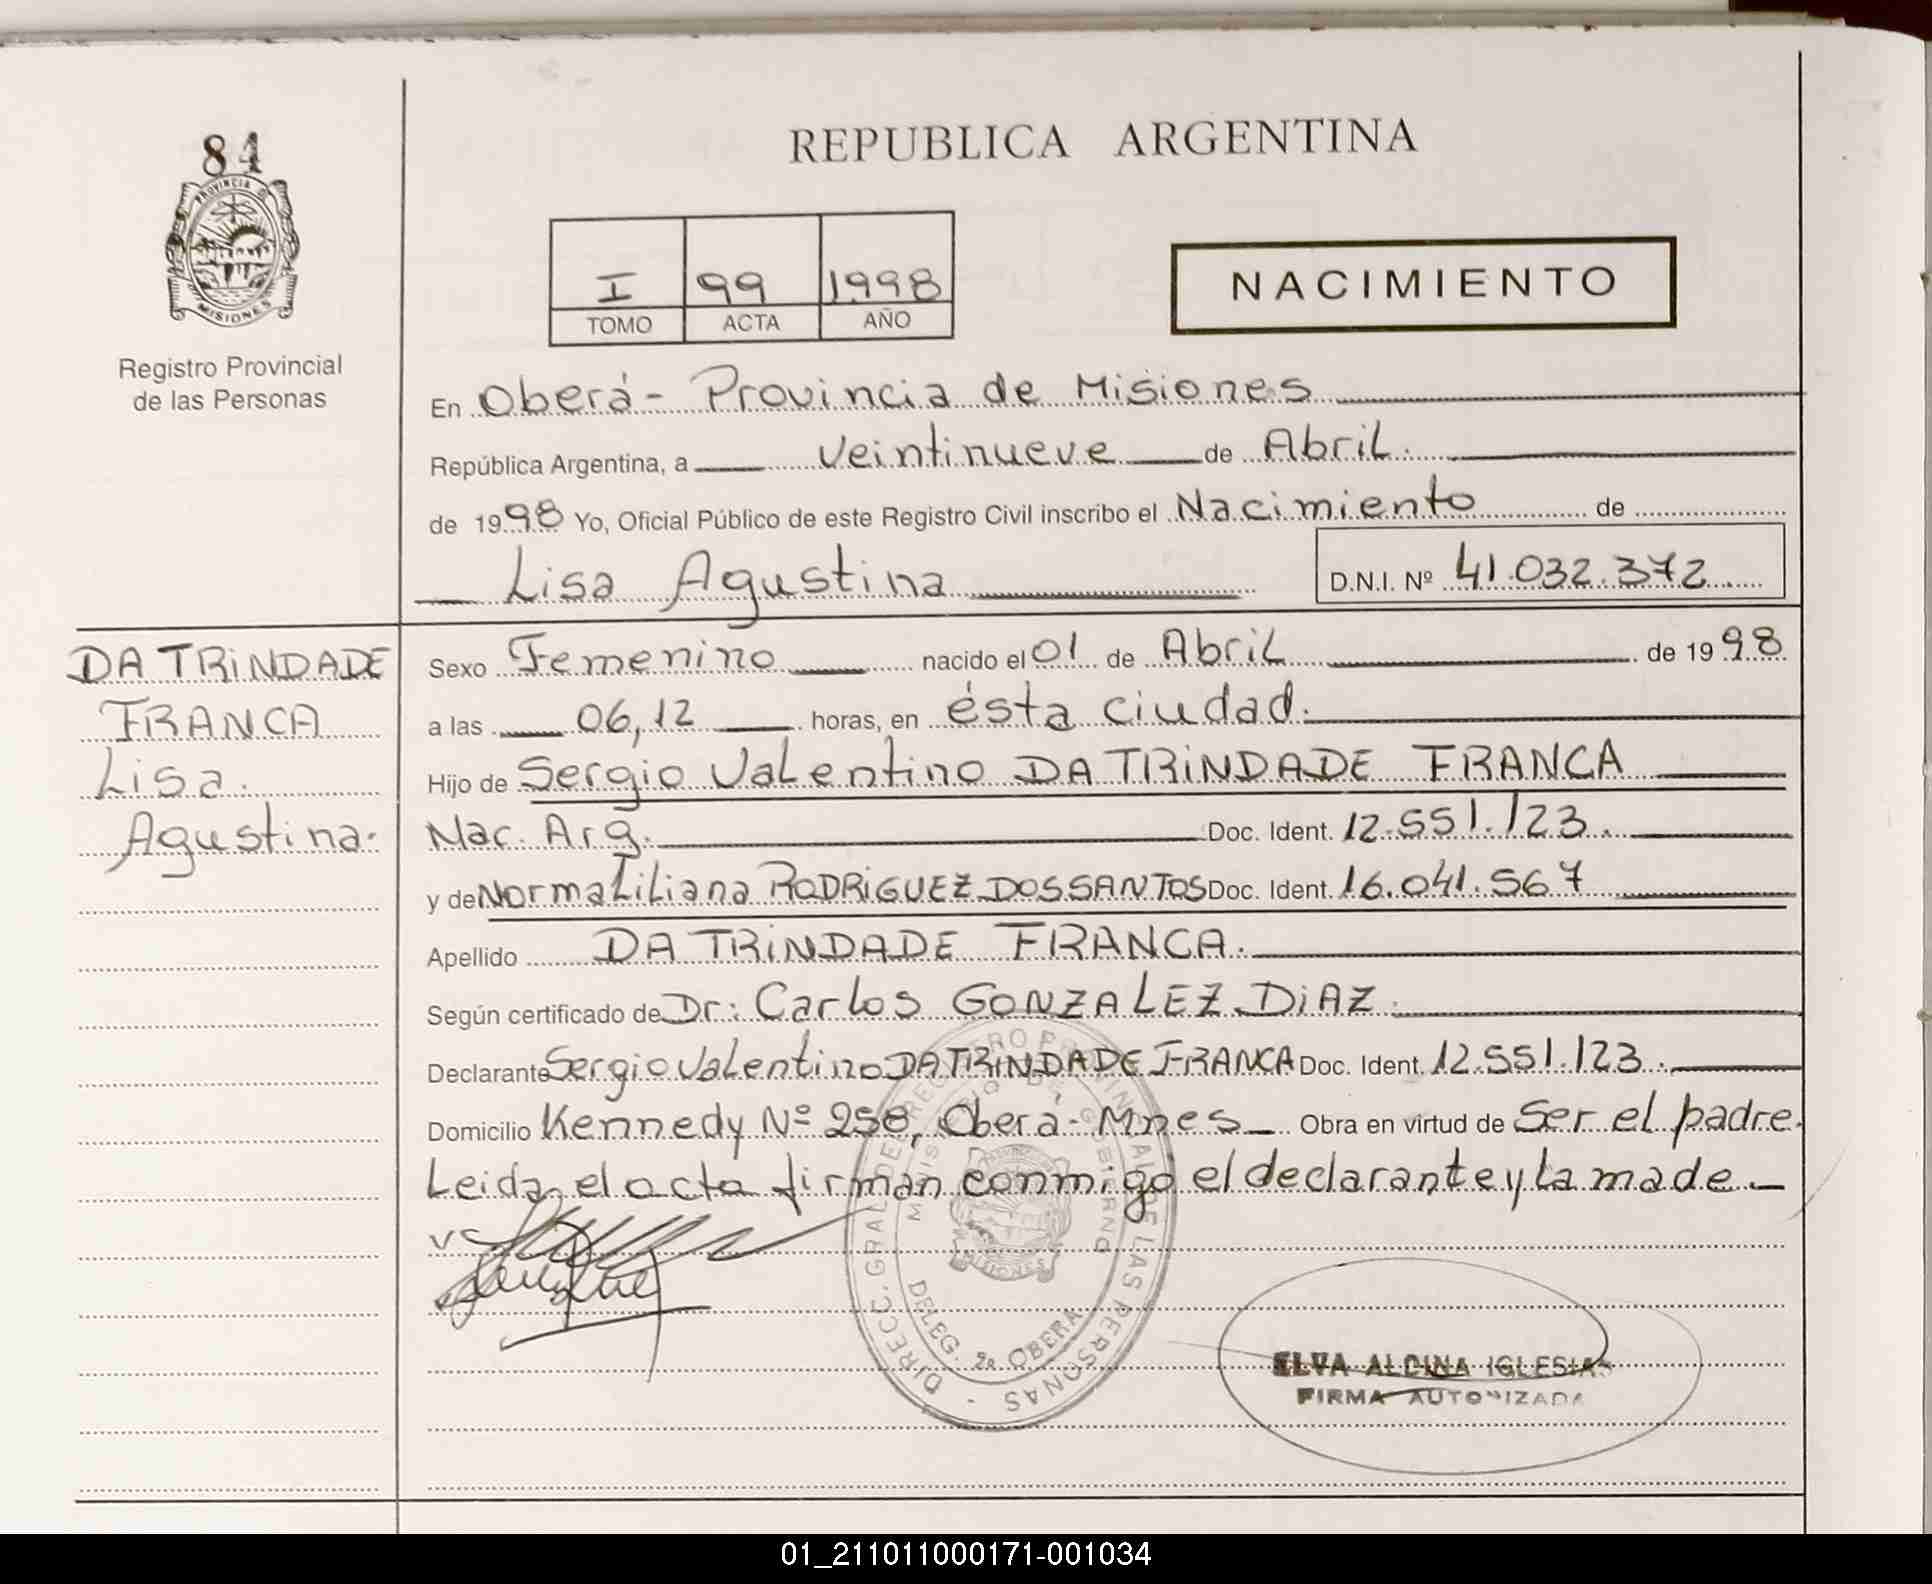 84
PROVINCIA DE
MISIONES
Registro Provincial
de las Personas
REPUBLICA ARGENTINA
I 99 1998
TOMO ACTA AÑO
NACIMIENTO
En Oberá - Provincia de Misiones
República Argentina, a veintinueve de Abril.
de 1998 Yo, Oficial Público de este Registro Civil inscribo el Nacimiento de
Lisa Agustina D.N.I. Nº 41.032.372
DA TRINDADE
FRANCA
Lisa.
Agustina.
Sexo Femenino nacido el 01 de Abril de 1998
a las 06,12 horas, en ésta ciudad.
Hijo de Sergio Valentino DA TRINDADE FRANCA
Nac. Arg. Doc. Ident. 12.551.123.
y de Norma Liliana RODRIGUEZ DOS SANTOS Doc. Ident. 16.041.567
Apellido DA TRINDADE FRANCA.
Según certificado de Dr: Carlos GONZALEZ DIAZ.
Declarante Sergio Valentino DA TRINDADE FRANCA Doc. Ident. 12.551.123.
Domicilio Kennedy Nº 258, Oberá - Mnes Obra en virtud de Ser el padre.
Leida el acta firman conmigo el declarante y la made
DIRECC. GRAL. DE REGISTRO PROVINCIAL DE LAS PERSONAS
MINISTERIO DE GOBIERNO
MISIONES
DELEG. 2a OBERA
ELVA ALCINA IGLESIAS
FIRMA AUTORIZADA
01_211011000171-001034